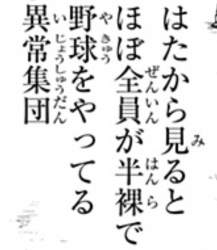 はたから見ると
ほぼ全員が半裸で
野球をやってる
異常集団